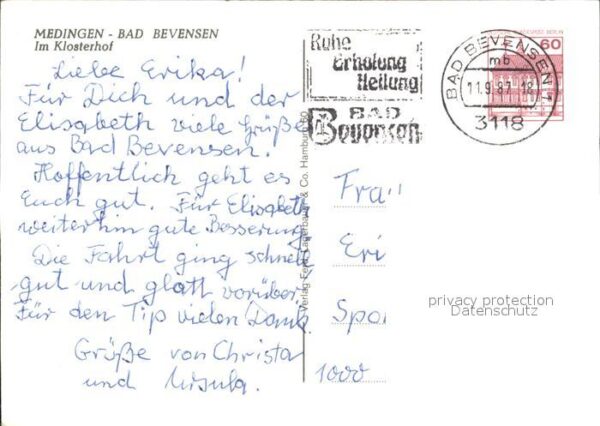 MEDINGEN - BAD BEVENSEN
Im Klosterhof
Liebe Erika!
Für Dich und der
Elisabeth viele Grüße
aus Bad Bevensen.
Hoffentlich geht es
Euch gut. Für Elisabeth
weiterhin gute Besserung
Die Fahrt ging schnell
gut und glatt vorüber.
Für den Tip vielen Dank
Grüße von Christa
und Ursula.
Ruhe
Erholung
Heilung
BAD
Bevensen
BAD BEVENSEN 1
mb
11.9.87-18
3118
60
Verlag Ferd. Lagerbauer & Co. Hamburg 60
Fra
Eri
Spa
1000
privacy protection
Datenschutz